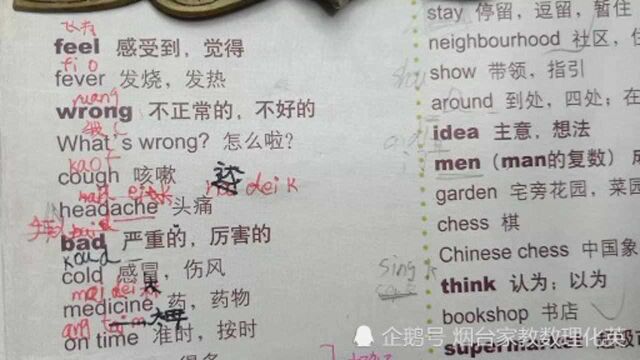 feel 感受到，觉得
fever 发烧，发热
ruang
wrong 不正常的，不好的
What's wrong? 怎么啦?
kaof
cough 咳嗽
headache 头痛
bad 严重的，厉害的
cold 感冒，伤风
medicine 药，药物
on time 准时，按时
stay 停留，逗留，暂住
neighbourhood 社区，
show 带领，指引
around 到处，四处；在
idea 主意，想法
men（man的复数）
garden 宅旁花园，菜园
chess 棋
Chinese chess 中国象
sing
think 认为；以为
bookshop 书店
企鹅号 烟台家教数理化英